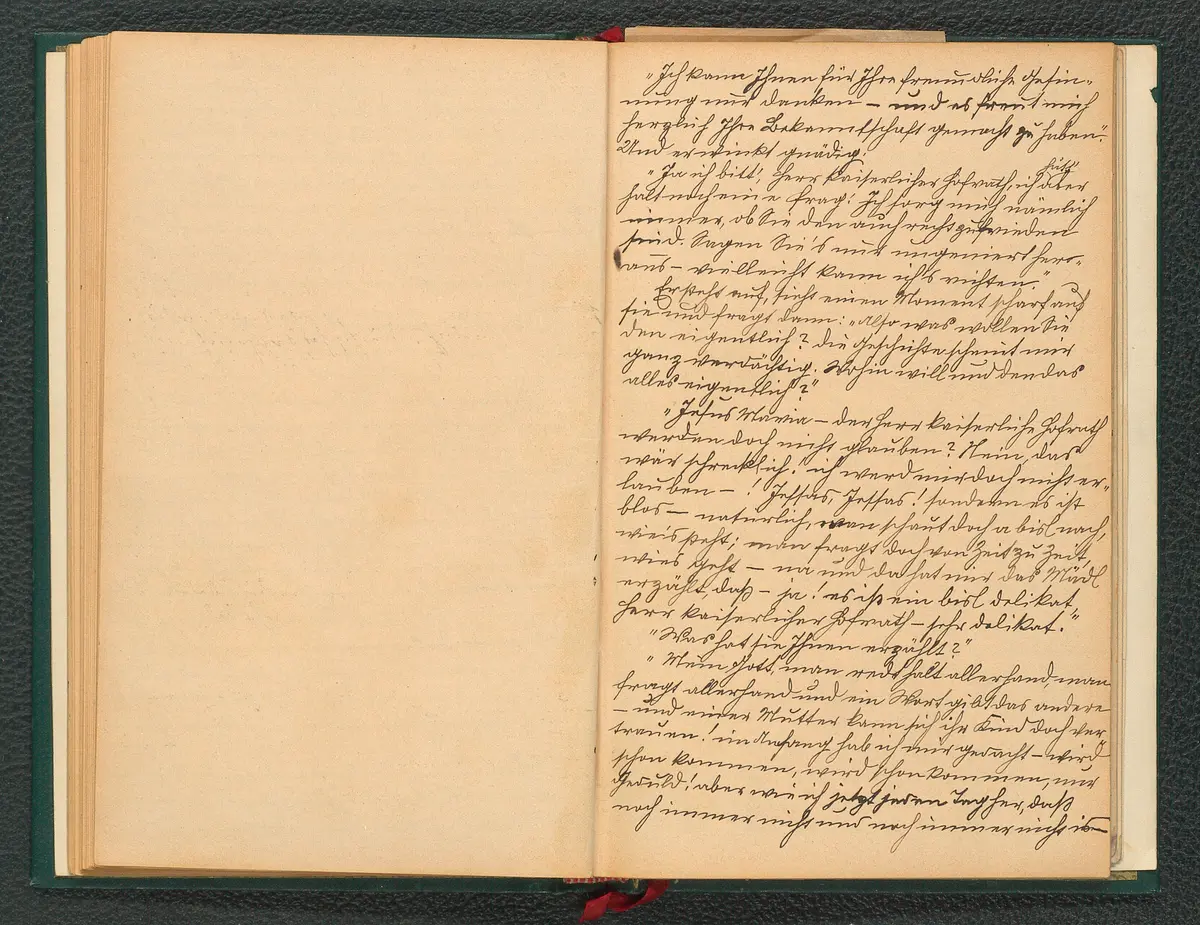 „Ich kann Ihnen für Ihre freundliche Gesin-
nung nur danken – und es freut mich
herzlich Ihre Bekanntschaft gemacht zu haben.“
Und er winkt gnädig.
„Ja ich bitt', Herr kaiserlicher Hofrath, ich hätt' aber
halt noch eine Frag'. Ich sorg mich nämlich
immer, ob Sie den auch recht zufrieden
sind. Sagen Sie's nur ungeniert her-
aus – vielleicht kann ich's richten.“
Er steht auf, sieht einen Moment scharf auf
sie und fragt dann: „Also was wollen Sie
den eigentlich? Die Geschichte scheint mir
ganz verdächtig. Wohin will und den das
alles eigentlich?“
„Jesus Maria – der Herr kaiserliche Hofrath
werden doch nicht glauben? Nein, das
wär schrecklich! ich werd mir doch nicht er-
lauben –! Jessas, Jessas! sondern es ist
blos – natürlich, man schaut doch a bisl nach,
wie's steht; man fragt doch von Zeit zu Zeit,
wies geht – na und da hat mir das Mädl
erzählt, daß – ja! es ist ein bisl delikat,
Herr kaiserlicher Hofrath – sehr delikat.“
„Was hat sie Ihnen erzählt?“
„Mein Gott, man redt halt allerhand, man
fragt allerhand und ein Wort gibt das andere
– und einer Mutter kann sich ihr Kind doch ver
trauen! im Anfang hab ich mir gedacht – wird
schon kommen, wird schon kommen, nur
Geduld! aber wie ich jetzt jeden Tag her, daß
noch immer nicht und noch immer nicht is –